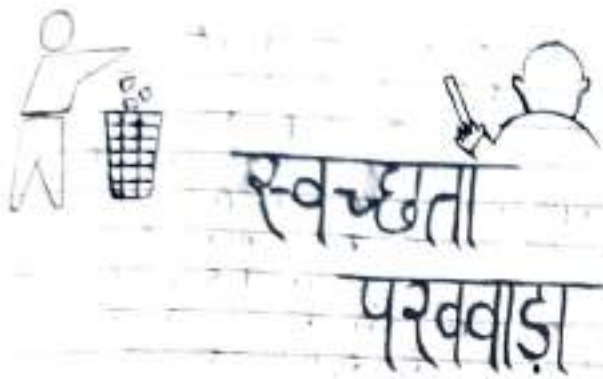 स्वच्छता
पखवाड़ा